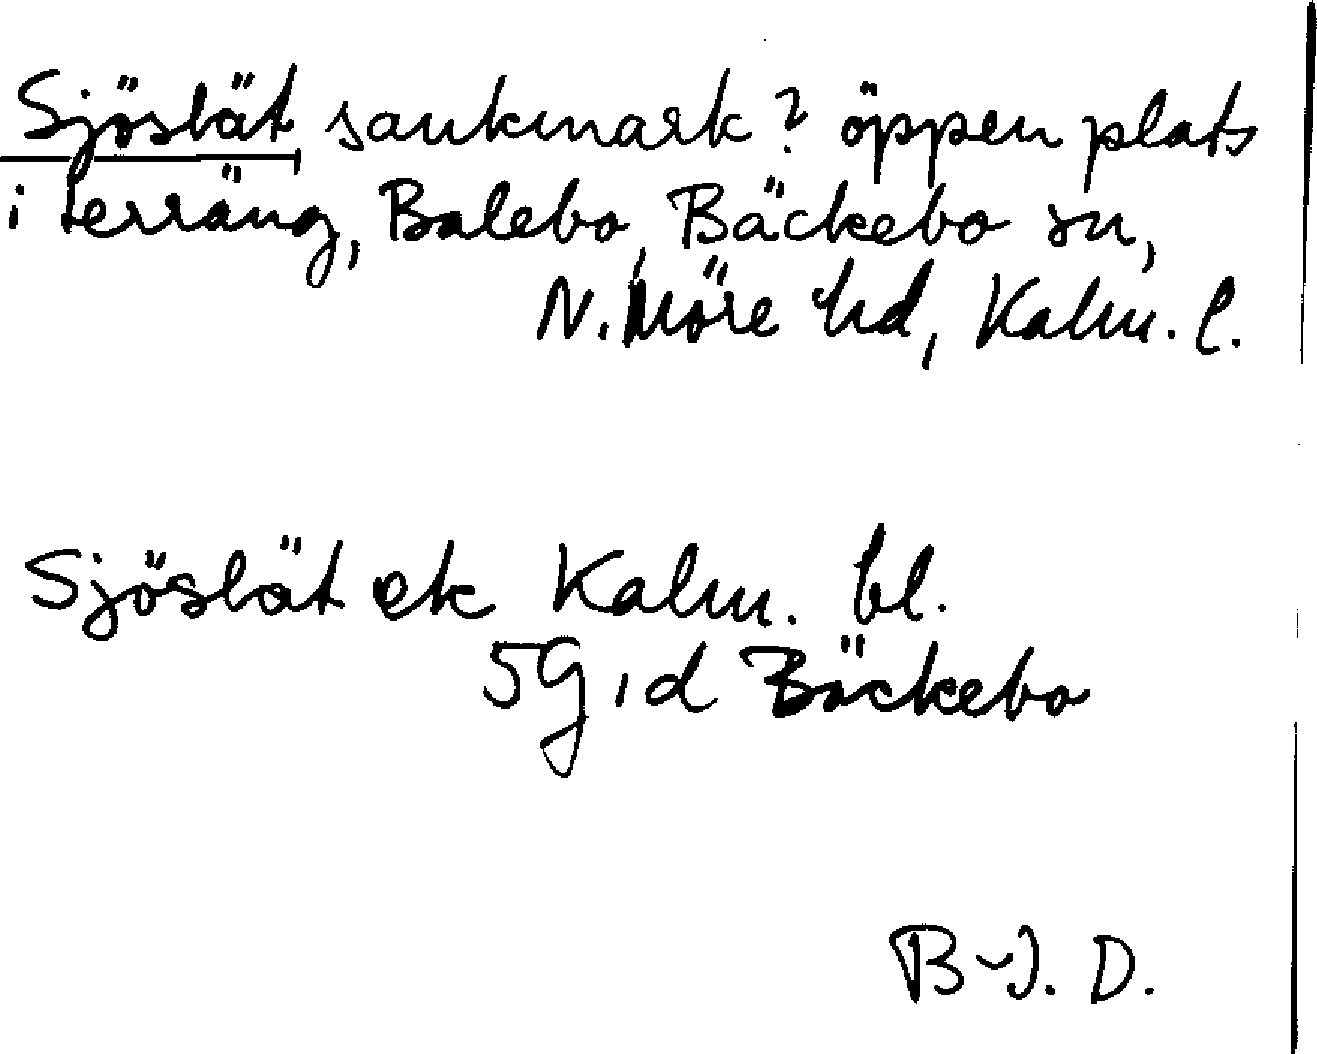 Sjöslät sankmark? öppen plats
i terräng, Balebo, Bäckebo sn,
N. Möre hd, Kalm. l.
Sjöslät ek Kalm. bl.
5G, d Bäckebo
B-J. D.